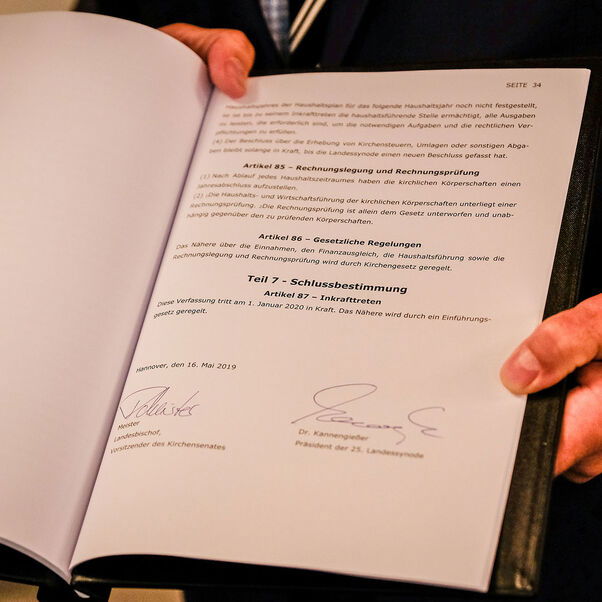 SEITE 34
Haushaltsjahres der Haushaltsplan für das folgende Haushaltsjahr noch nicht festgestellt,
ist bis zu seinem Inkrafttreten die haushaltführende Stelle ermächtigt, alle Ausgaben
zu leisten, die erforderlich sind, um die notwendigen Aufgaben und die rechtlichen Ver-
pflichtungen zu erfüllen.
(4) Der Beschluss über die Erhebung von Kirchensteuern, Umlagen oder sonstigen Abga-
ben bleibt solange in Kraft, bis die Landessynode einen neuen Beschluss gefasst hat.
Artikel 85 – Rechnungslegung und Rechnungsprüfung
(1) Nach Ablauf jedes Haushaltszeitraumes haben die kirchlichen Körperschaften einen
Jahresabschluss aufzustellen.
(2) ¹Die Haushalts- und Wirtschaftsführung der kirchlichen Körperschaften unterliegt einer
Rechnungsprüfung. ²Die Rechnungsprüfung ist allein dem Gesetz unterworfen und unab-
hängig gegenüber den zu prüfenden Körperschaften.
Artikel 86 – Gesetzliche Regelungen
Das Nähere über die Einnahmen, den Finanzausgleich, die Haushaltsführung sowie die
Rechnungslegung und Rechnungsprüfung wird durch Kirchengesetz geregelt.
Teil 7 - Schlussbestimmung
Artikel 87 – Inkrafttreten
Diese Verfassung tritt am 1. Januar 2020 in Kraft. Das Nähere wird durch ein Einführungs-
gesetz geregelt.
Hannover, den 16. Mai 2019
Meister
Landesbischof,
Vorsitzender des Kirchensenates
Dr. Kannengießer
Präsident der 25. Landessynode